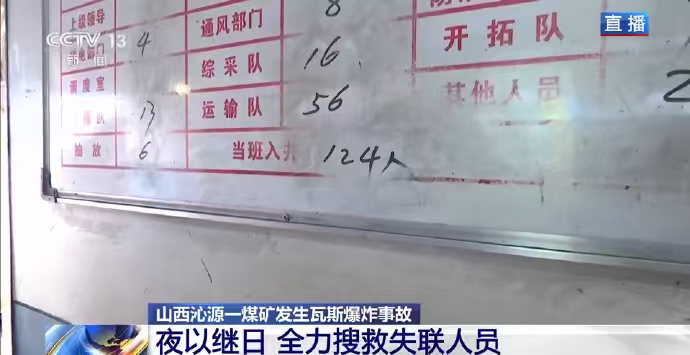 CCTV 13
新闻
直播
上级领导
通风部门 8
开拓队
4
综采队 16
其他人员 2
调度室
运输队 56
13
抽放 6
当班入井 124人
山西沁源一煤矿发生瓦斯爆炸事故
夜以继日 全力搜救失联人员